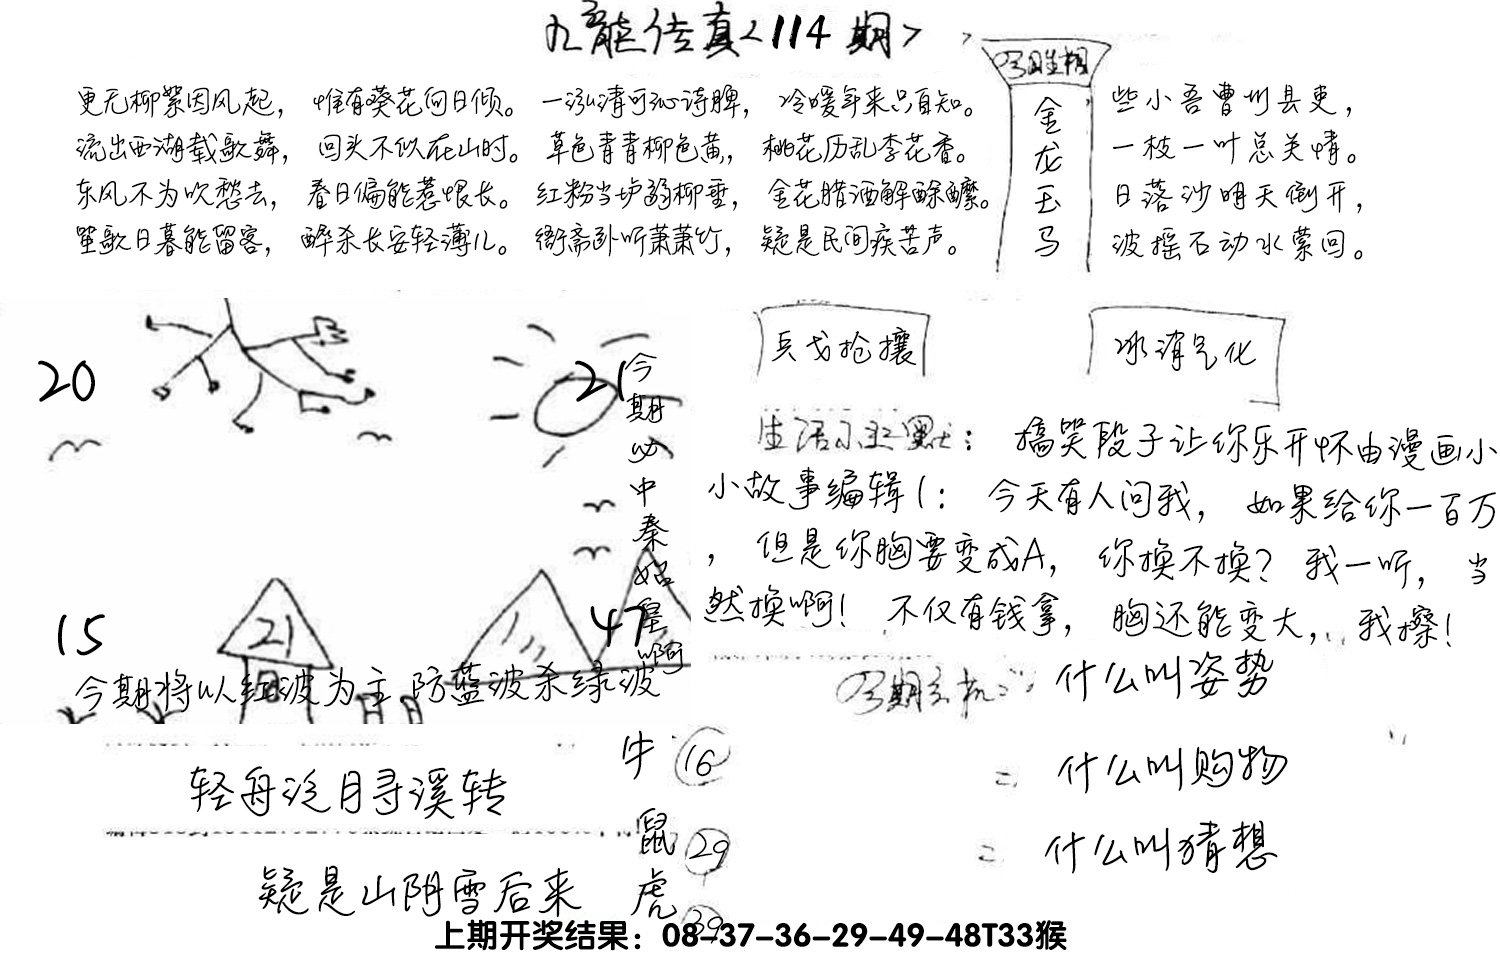 九龙传真<114期>
更无柳絮因风起，惟有葵花向日倾。一泓清可沁诗脾，冷暖年来只自知。
流出西湖载歌舞，回头不似在山时。草色青青柳色黄，桃花历乱李花香。
东风不为吹愁去，春日偏能惹恨长。红粉当垆弱柳垂，金花腊酒解酴醾。
笙歌日暮能留客，醉杀长安轻薄儿。衙斋卧听萧萧竹，疑是民间疾苦声。
金龙玉马
些小吾曹州县吏，
一枝一叶总关情。
日落沙明天倒开，
波摇石动水萦回。
20
21
今期必中秦始皇啊
15
21
47
今期将以红波为主防蓝波杀绿波
兵戈抢攘
冰消气化
生活小幽默：搞笑段子让你乐开怀由漫画小
小故事编辑1：今天有人问我，如果给你一百万
，但是你胸要变成A，你换不换？我一听，当
然换啊！不仅有钱拿，胸还能变大，我擦！
什么叫姿势
什么叫购物
什么叫猜想
轻舟泛月寻溪转
疑是山阴雪后来
牛 16
鼠 29
虎 39
上期开奖结果：08-37-36-29-49-48T33猴